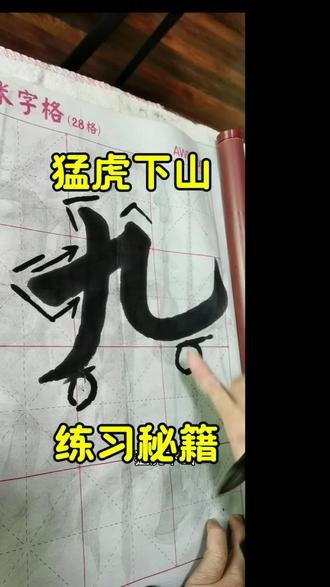 米字格(28格)
AW
猛虎下山
九
练习秘籍